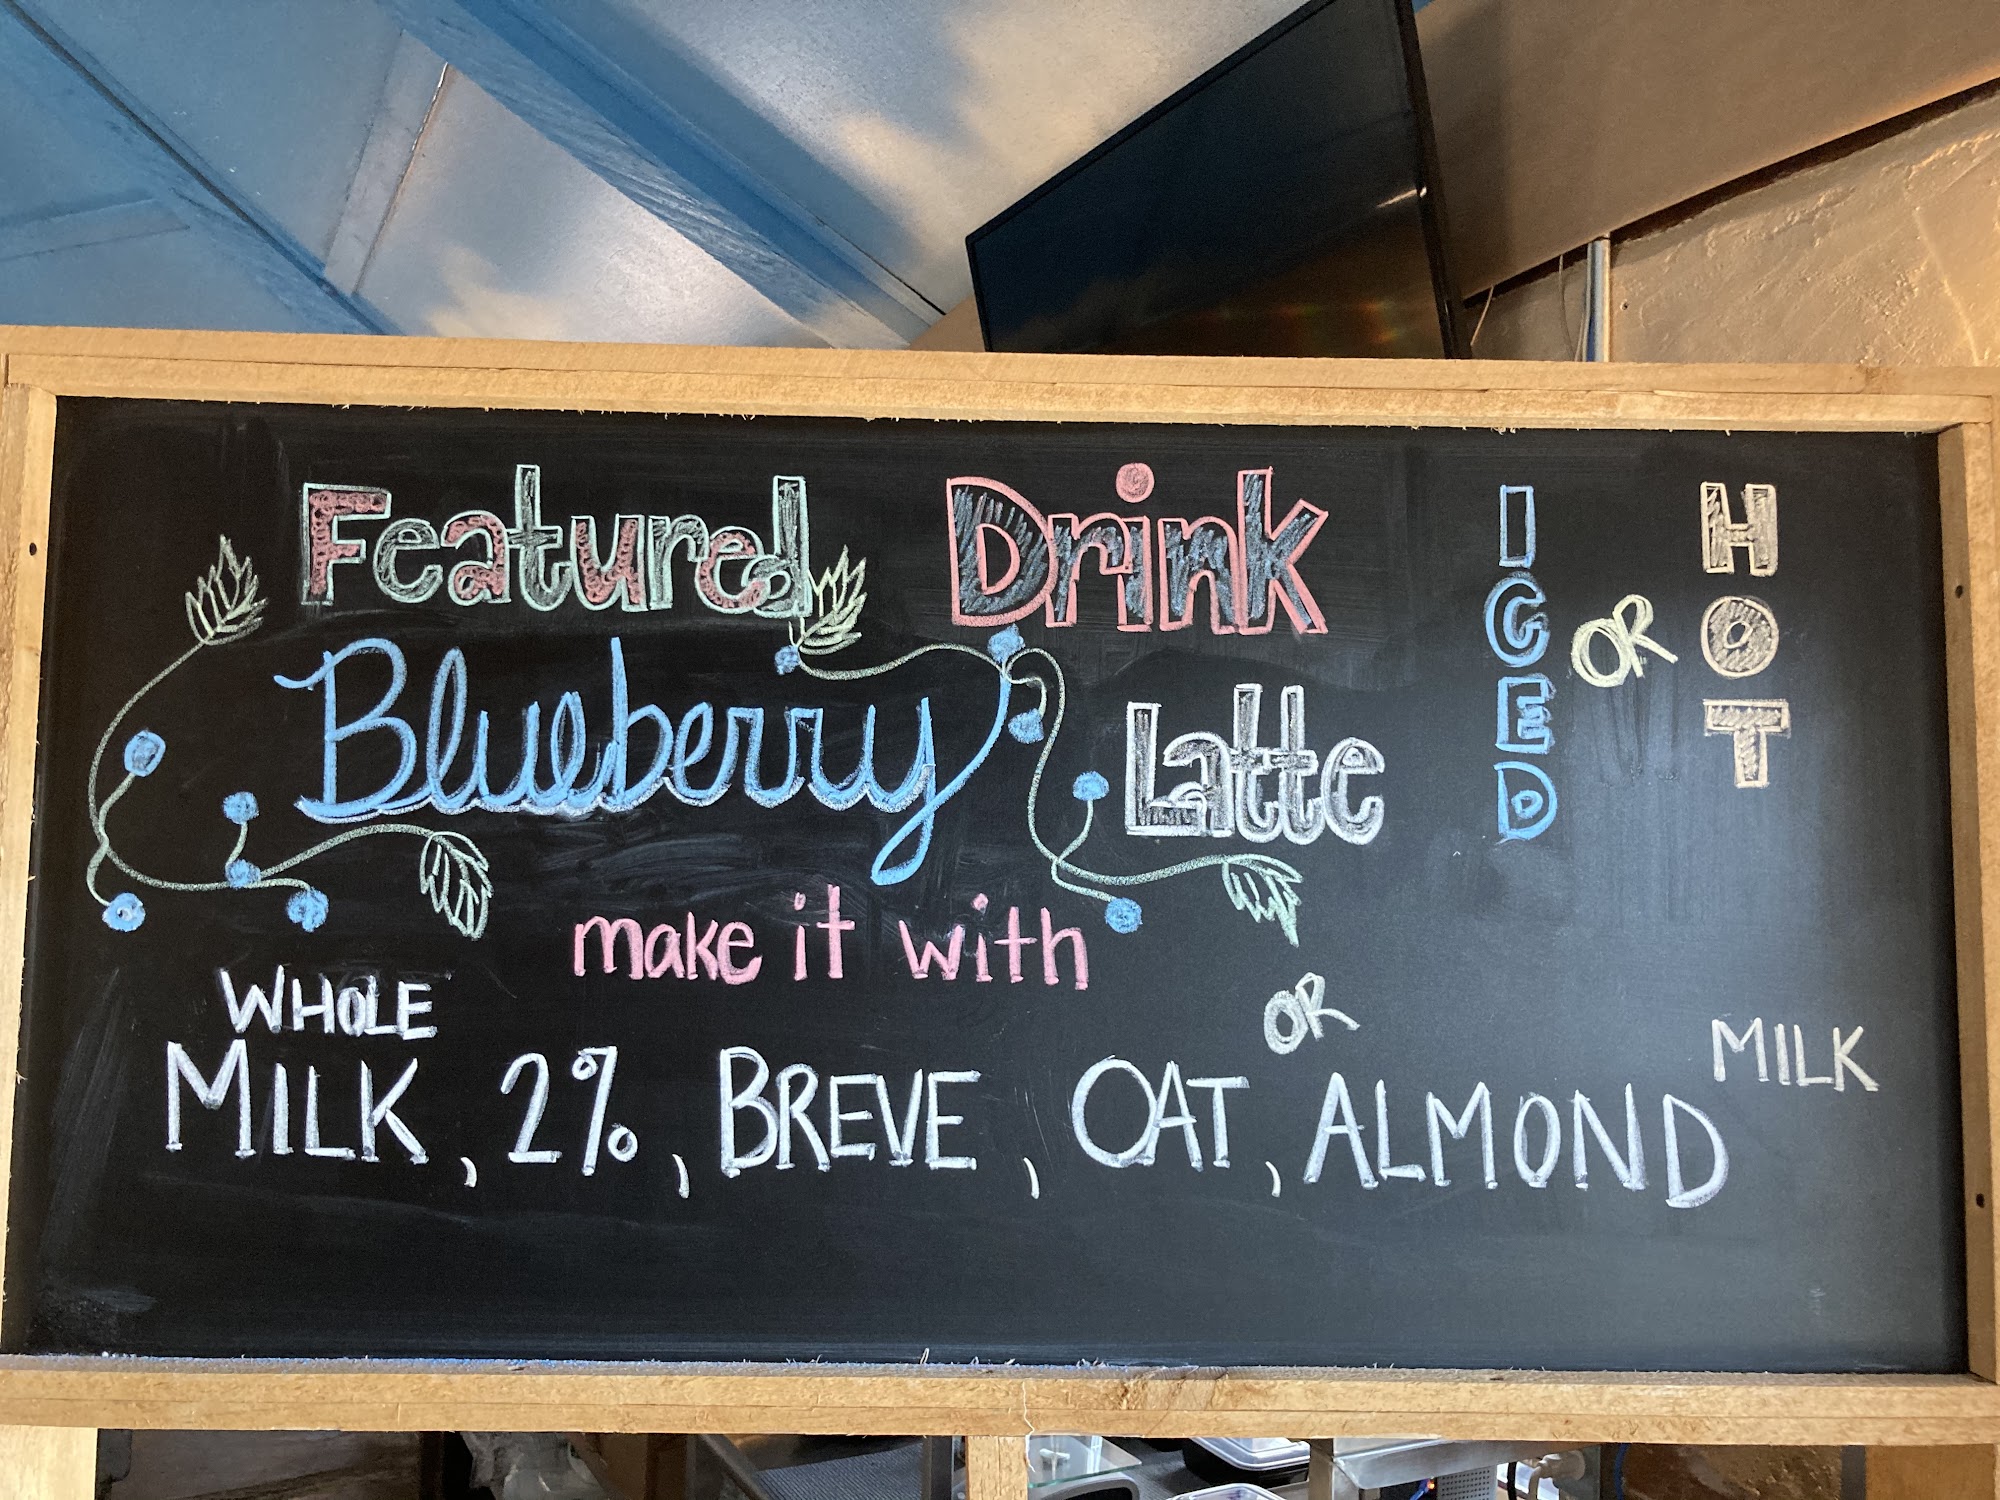 Featured Drink
Blueberry Latte
ICED OR HOT
make it with
WHOLE
MILK, 2%, BREVE, OAT, OR ALMOND MILK